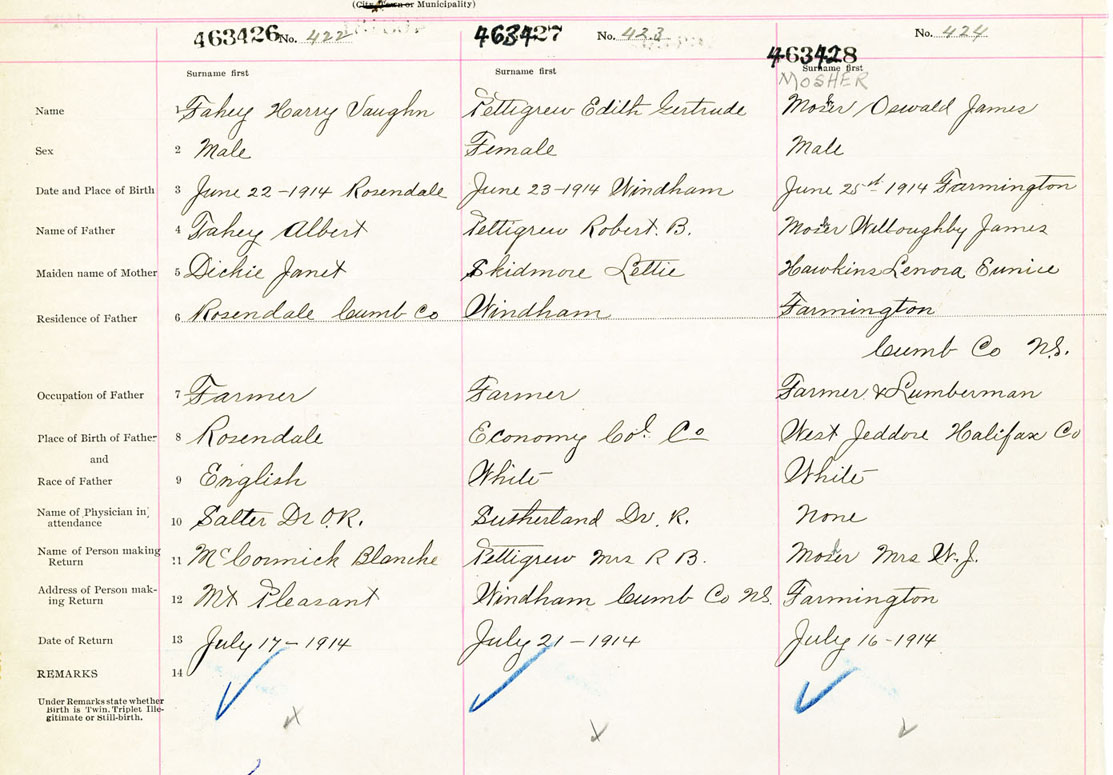 (City Town or Municipality)
463426 No. 422 463427 No. 423 463428 No. 424
Surname first Surname first Surname first
MOSHER
Name 1 Fahey Harry Vaughn Pettigrew Edith Gertrude Moser Oswald James
Sex 2 Male Female Male
Date and Place of Birth 3 June 22-1914 Rosendale June 23-1914 Windham June 25st 1914 Farmington
Name of Father 4 Fahey Albert Pettigrew Robert. B. Moser Willoughby James
Maiden name of Mother 5 Dickie Janet Skidmore Lettie Hawkins Lenora Eunice
Residence of Father 6 Rosendale Cumb Co Windham Farmington
Cumb Co N.S.
Occupation of Father 7 Farmer Farmer Farmer & Lumberman
Place of Birth of Father 8 Rosendale Economy Col. Co West Jeddore Halifax Co
and
Race of Father 9 English White White
Name of Physician in attendance 10 Salter Dr O.R. Sutherland Dr. R. None
Name of Person making Return 11 McCormick Blanche Pettigrew Mrs R B. Moser Mrs W.J.
Address of Person mak-
ing Return 12 Mt Pleasant Windham Cumb Co N.S. Farmington
Date of Return 13 July 17-1914 July 21-1914 July 16-1914
REMARKS 14
Under Remarks state whether
Birth is Twin. Triplet Ille-
gitimate or Still-birth.